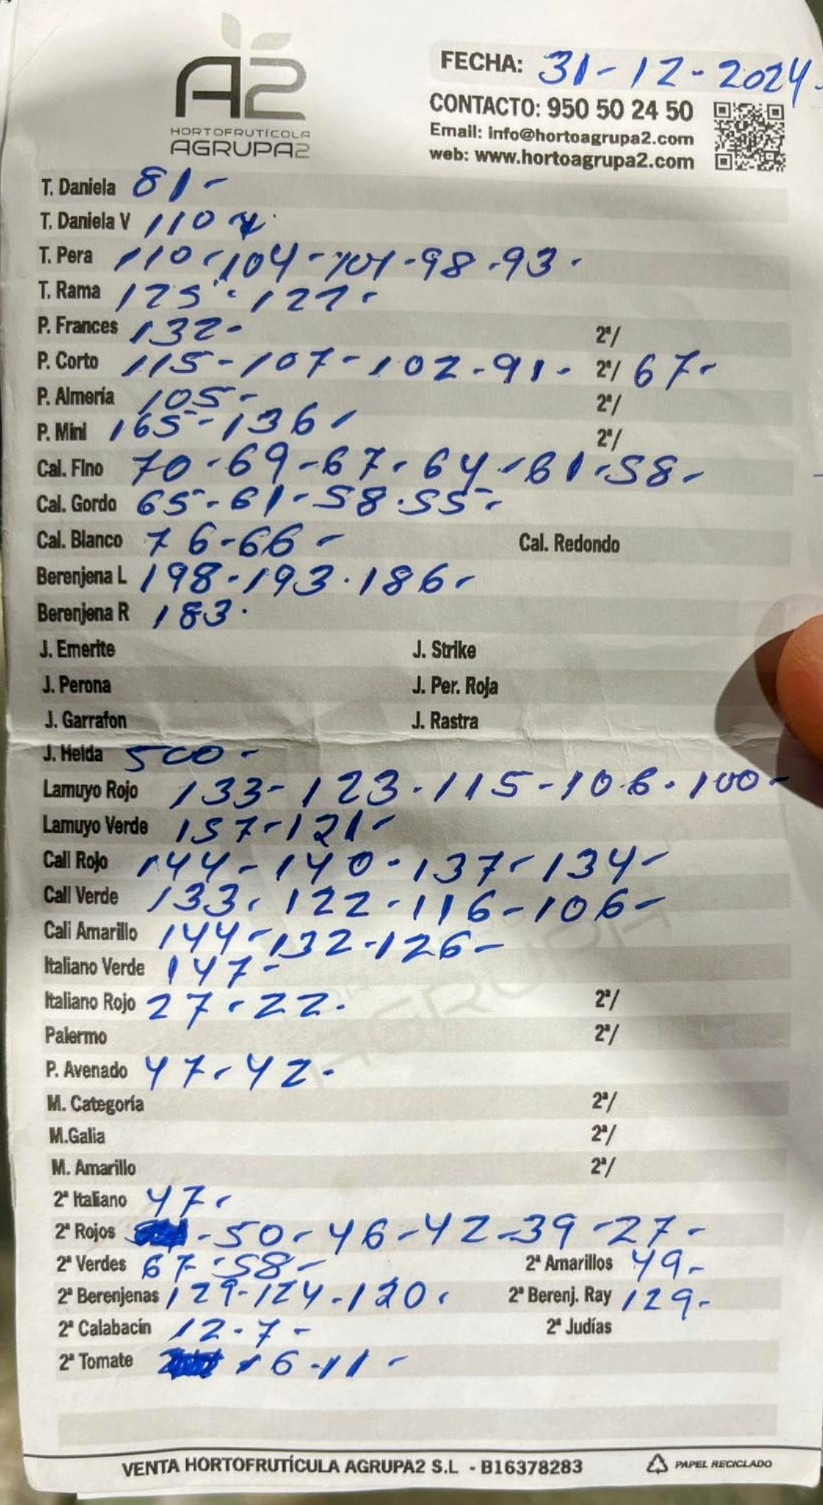 A2
HORTOFRUTÍCOLA
AGRUPA2
FECHA: 31-12-2024.
CONTACTO: 950 50 24 50
Email: info@hortoagrupa2.com
web: www.hortoagrupa2.com
T. Daniela 81-
T. Daniela V 110
T. Pera 110-104-101-98-93.
T. Rama 125-122-
P. Frances 132- 2ª/
P. Corto 115-107-102-91- 2ª/ 67-
P. Almería 105- 2ª/
P. Mini 165-136- 2ª/
Cal. Fino 70-69-67-64-61-58-
Cal. Gordo 65-61-58-55-
Cal. Blanco 76-66- Cal. Redondo
Berenjena L 198-193-186-
Berenjena R 183.
J. Emerite J. Strike
J. Perona J. Per. Roja
J. Garrafon J. Rastra
J. Helda 500-
Lamuyo Rojo 133-123-115-106-100-
Lamuyo Verde 157-121-
Cali Rojo 144-140-137-134-
Cali Verde 133-122-116-106-
Cali Amarillo 144-132-126-
Italiano Verde 147-
Italiano Rojo 27-22. 2ª/
Palermo 2ª/
P. Avenado 47-42-
M. Categoría 2ª/
M.Galia 2ª/
M. Amarillo 2ª/
2ª Italiano 47-
2ª Rojos -50-46-42-39-27-
2ª Verdes 67-58- 2ª Amarillos 49-
2ª Berenjenas 129-124-120- 2ª Berenj. Ray 129-
2ª Calabacin 12-7- 2ª Judías
2ª Tomate 16-11-
VENTA HORTOFRUTÍCULA AGRUPA2 S.L - B16378283 PAPEL RECICLADO